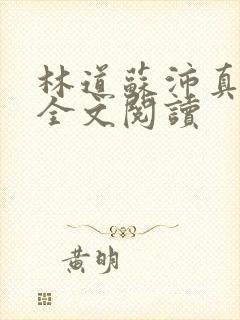 林道蘇沛真
全文閱讀
黃明